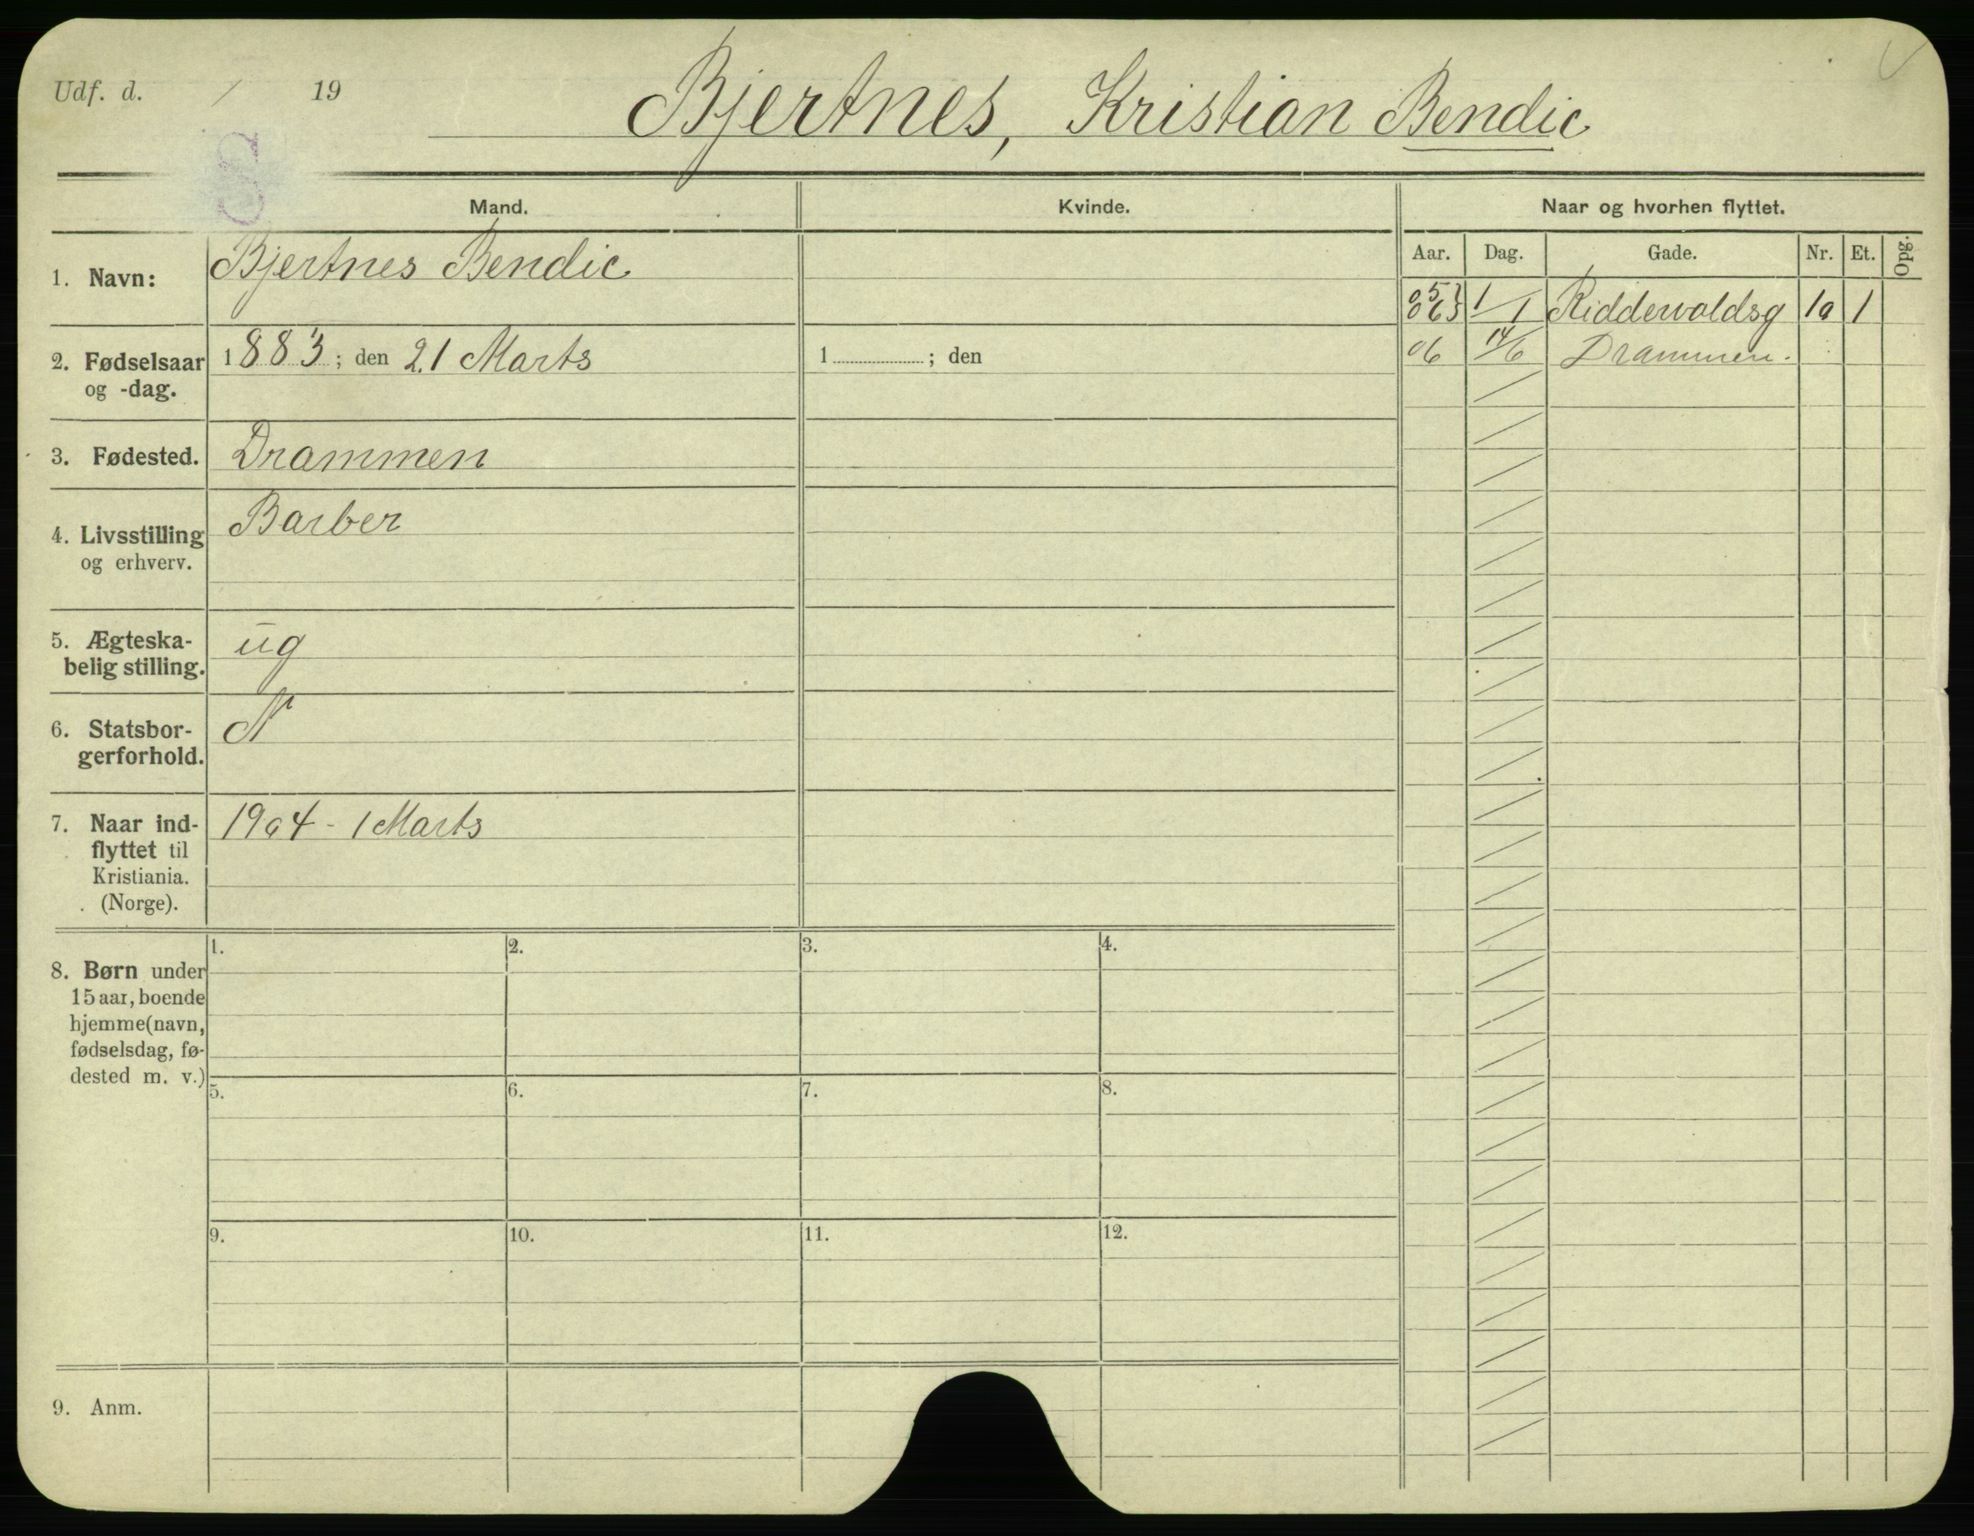 Udf. d. / 19
Bjertnes, Kristian Bendic
S
Mand.
Kvinde.
Naar og hvorhen flyttet.
Aar. Dag. Gade. Nr. Et. Opg.
1. Navn: Bjertnes Bendic
05 } 06 } 1/1 Riddervoldsg 10 1
2. Fødselsaar og -dag. 1883; den 21 Marts
1 ; den
06 14/6 Drammen.
3. Fødested. Drammen
4. Livsstilling og erhverv. Barber
5. Ægteska-
belig stilling. ug
6. Statsbor-
gerforhold. N
7. Naar ind-
flyttet til
Kristiania.
(Norge). 1904 - 1 Marts
8. Børn under
15 aar, boende
hjemme (navn,
fødselsdag, fø-
dested m. v.)
1. 2. 3. 4.
5. 6. 7. 8.
9. 10. 11. 12.
9. Anm.